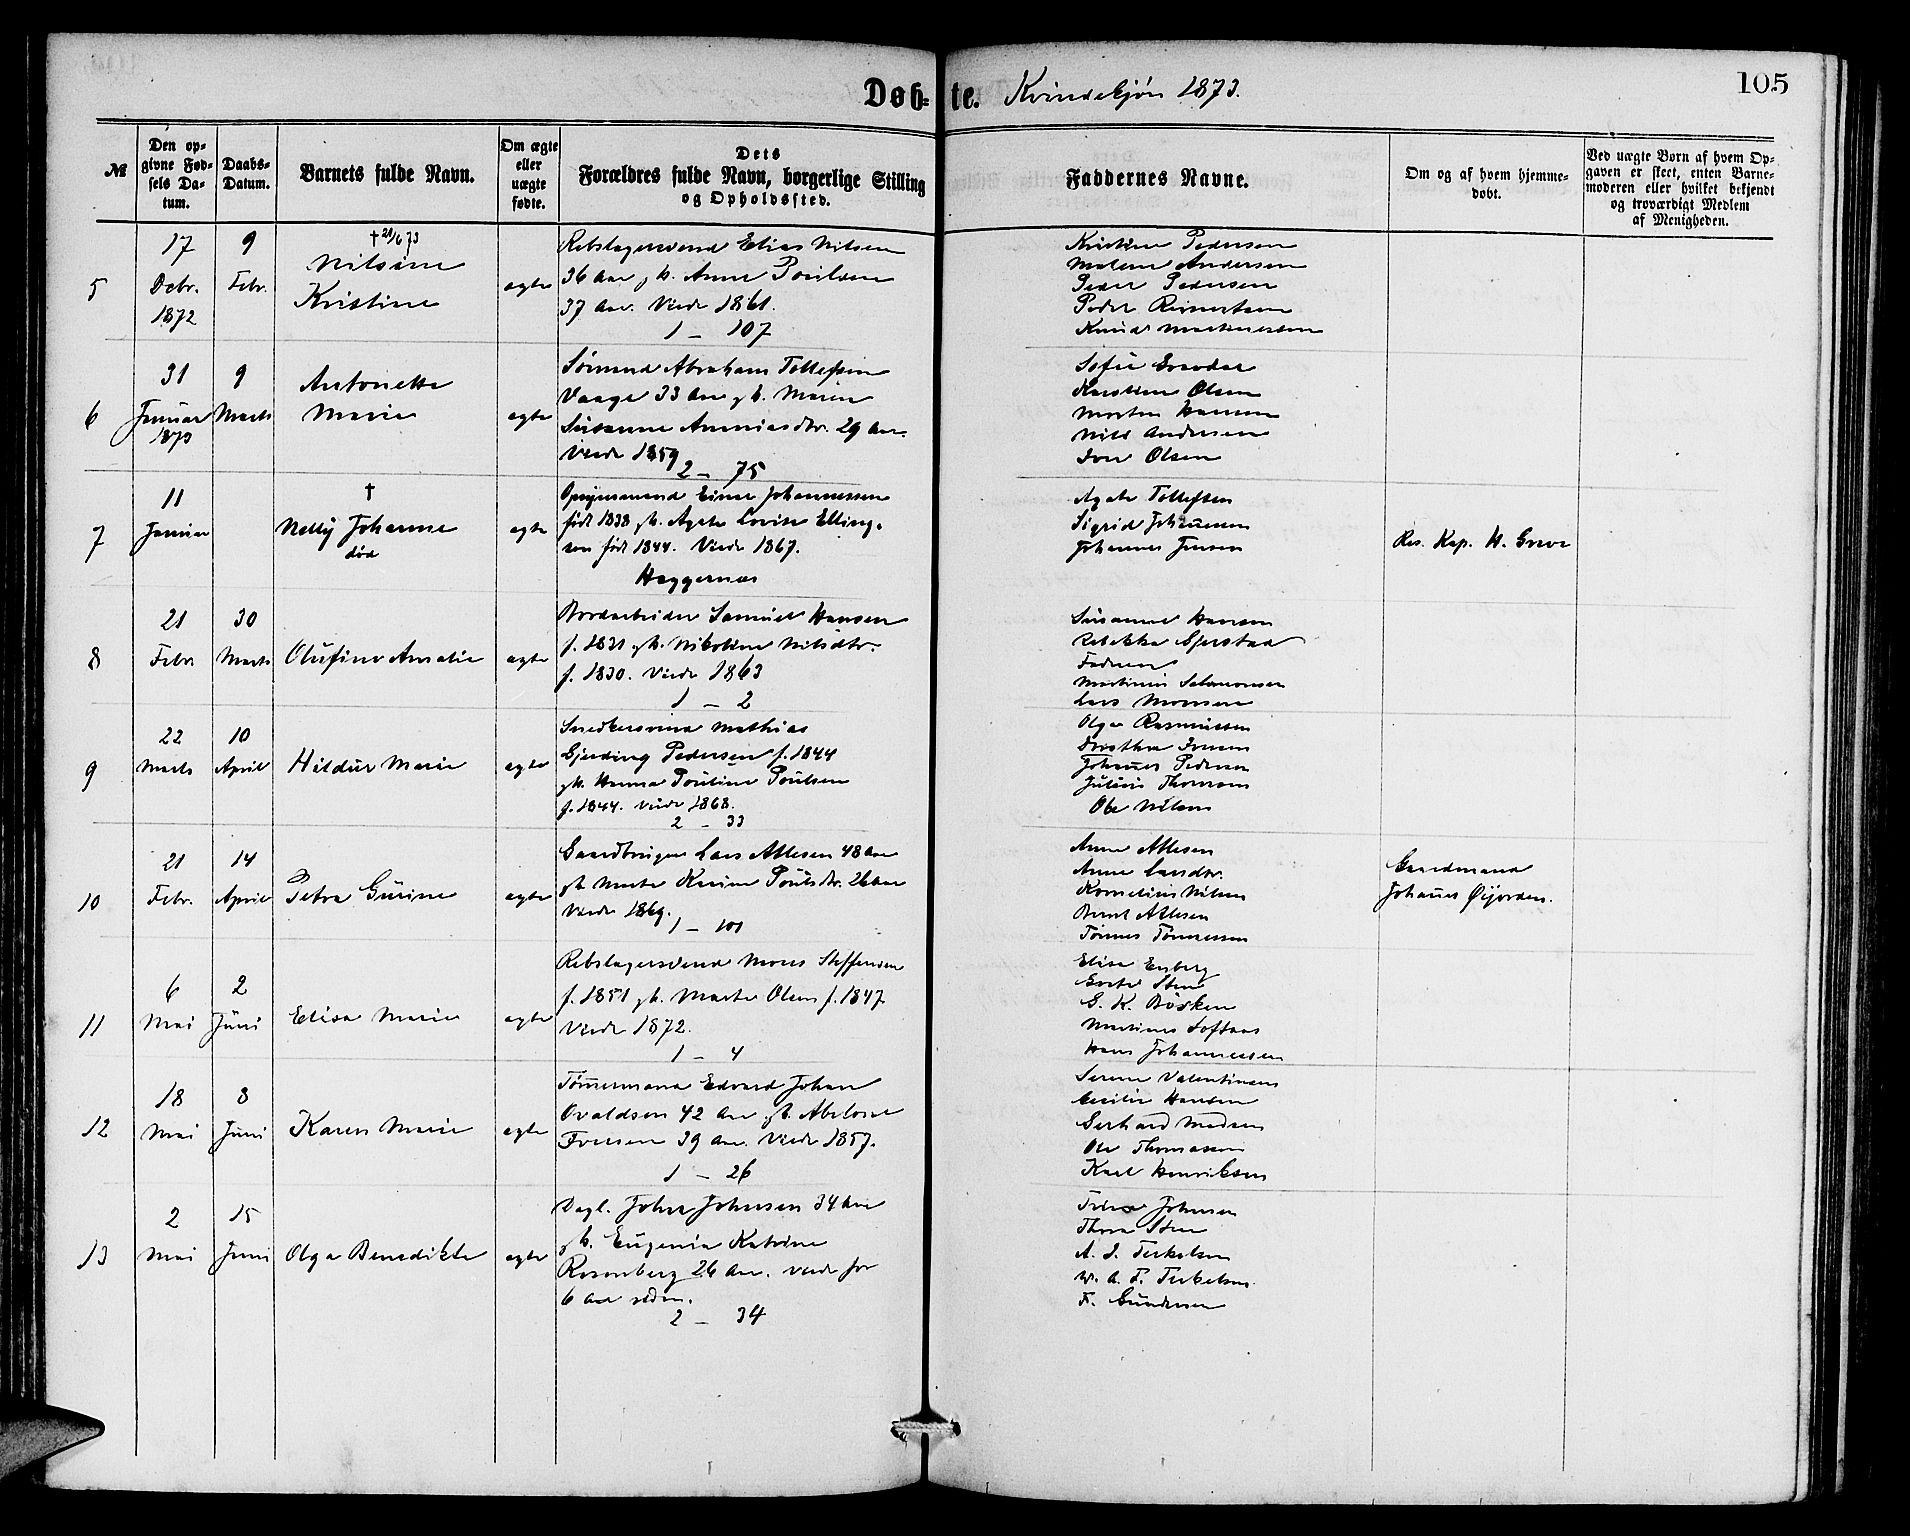 Døb-te. Kvindekjøn 1873.
105
№
Den op-
givne Fød-
sels Da-
tum.
Daabs-
Datum.
Barnets fulde Navn.
Om ægte
eller
uægte
fødte.
Dets
Forældres fulde Navn, borgerlige Stilling
og Opholdssted.
Faddernes Navne.
Om og af hvem hjemme-
døbt.
Ved uægte Børn af hvem Op-
gaven er skeet, enten Barne-
moderen eller hvilket bekjendt
og troværdigt Medlem
af Menigheden.
5
17
Debr.
1872
9
Febr.
† 21/6 73
Nilsine
Kristine
ægte
Rebslagersvend Elias Nilsen
36 Aar gb. Anne Poulsen
37 Aar. Viede 1861.
1 – 107
Kristine Pedersen
Malene Andersen
Peder Pedersen
Peder Reinertsen
Knud Martinussen
6
31
Januar
1873
9
Marts
Antonette
Marie
ægte
Sømand Abraham Tollefsen
Vaage 33 Aar gb. Maren
Susanne Ananiasdtr. 29 Aar.
Viede 1859
2 – 75
Sofie
Karstine Olsen
Morten Hansen
Nils Andersen
Iver Olsen
7
11
Januar
†
Nelly Johanne
død
ægte
Einar Johannessen
født 1838 gb. Agate Lovise Elling-
sen født 1844. Viede 1867.
Haggernæs
Agate Tollefsen
Sigrid Johannesen
Johannes Jensen
Res. Kap. H.
8
21
Febr.
30
Marts
Olufine Amalie
ægte
Bordarbeider Samuel Hansen
f. 1831 gb. Nikoline Nilsdtr.
f. 1830. Viede 1863
1 – 2
Susanne Hansen
Rebekka Gjerstad
Faderen
Martinus Salomonsen
Lars Monsen
9
22
Marts
10
April
Hildur Marie
ægte
Snedkersvend Mathias
Gjerding Pedersen f. 1844
gb. Hanna Pouline Poulsen
f. 1844. Viede 1868.
2 – 33
Olga Rasmussen
Dorothea Iversen
Johannes Pedersen
Julius Thomsen
Ole Nilsen
10
21
Febr.
14
April
Petra Gurine
ægte
Gaardbruger Lars Atlesen 48 Aar
gb. Marte Karine Poulsdtr. 26 Aar
Viede 1869.
1 – 101
Anne Atlesen
Anne Larsdtr.
Kornelius Nilsen
Bernt Atlesen
Tønnes Tønnessen
Gaardmand
Johannes Øijorden.
11
6
Mai
2
Juni
Elisa Marie
ægte
Rebslagersvend Mons Steffensen
f. 1851 gb. Marta Olsen f. 1847.
Viede 1872.
1 – 4
Elisa Enberg
Sten
G. K.
Martinus Softaas
Hans Johannessen
12
18
Mai
8
Juni
Karen Marie
ægte
Tømmermand Edvard Johan
Ovaldsen 42 Aar gb. Abelone
Iversen 39 Aar. Viede 1857.
1 – 26
Serene Valentinsen
Cecilie Hansen
Gerhard Madsen
Ole Thomassen
Karl Henriksen
13
2
Mai
15
Juni
Olga Benedikte
ægte
Dagl. Johan Johnsen 34 Aar
gb. Eugenia Katrine
Rosenberg 26 Aar. Viede for
6 Aar siden.
2 – 34
Johnsen
Thora Sten
A. J. Terkelsen
W. A. F. Terkelsen.
F. Gundersen